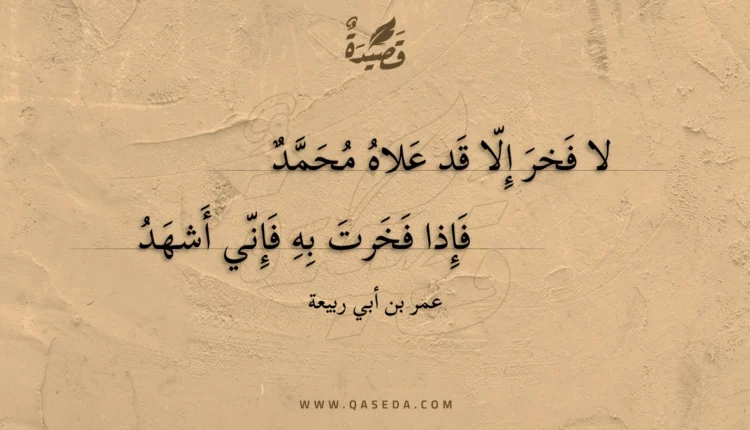 قَصِيْدَةٌ
لا فَخرَ إِلّا قَد عَلاهُ مُحَمَّدٌ
فَإِذا فَخَرتَ بِهِ فَإِنّي أَشهَدُ
عمر بن أبي ربيعة
WWW.QASEDA.COM